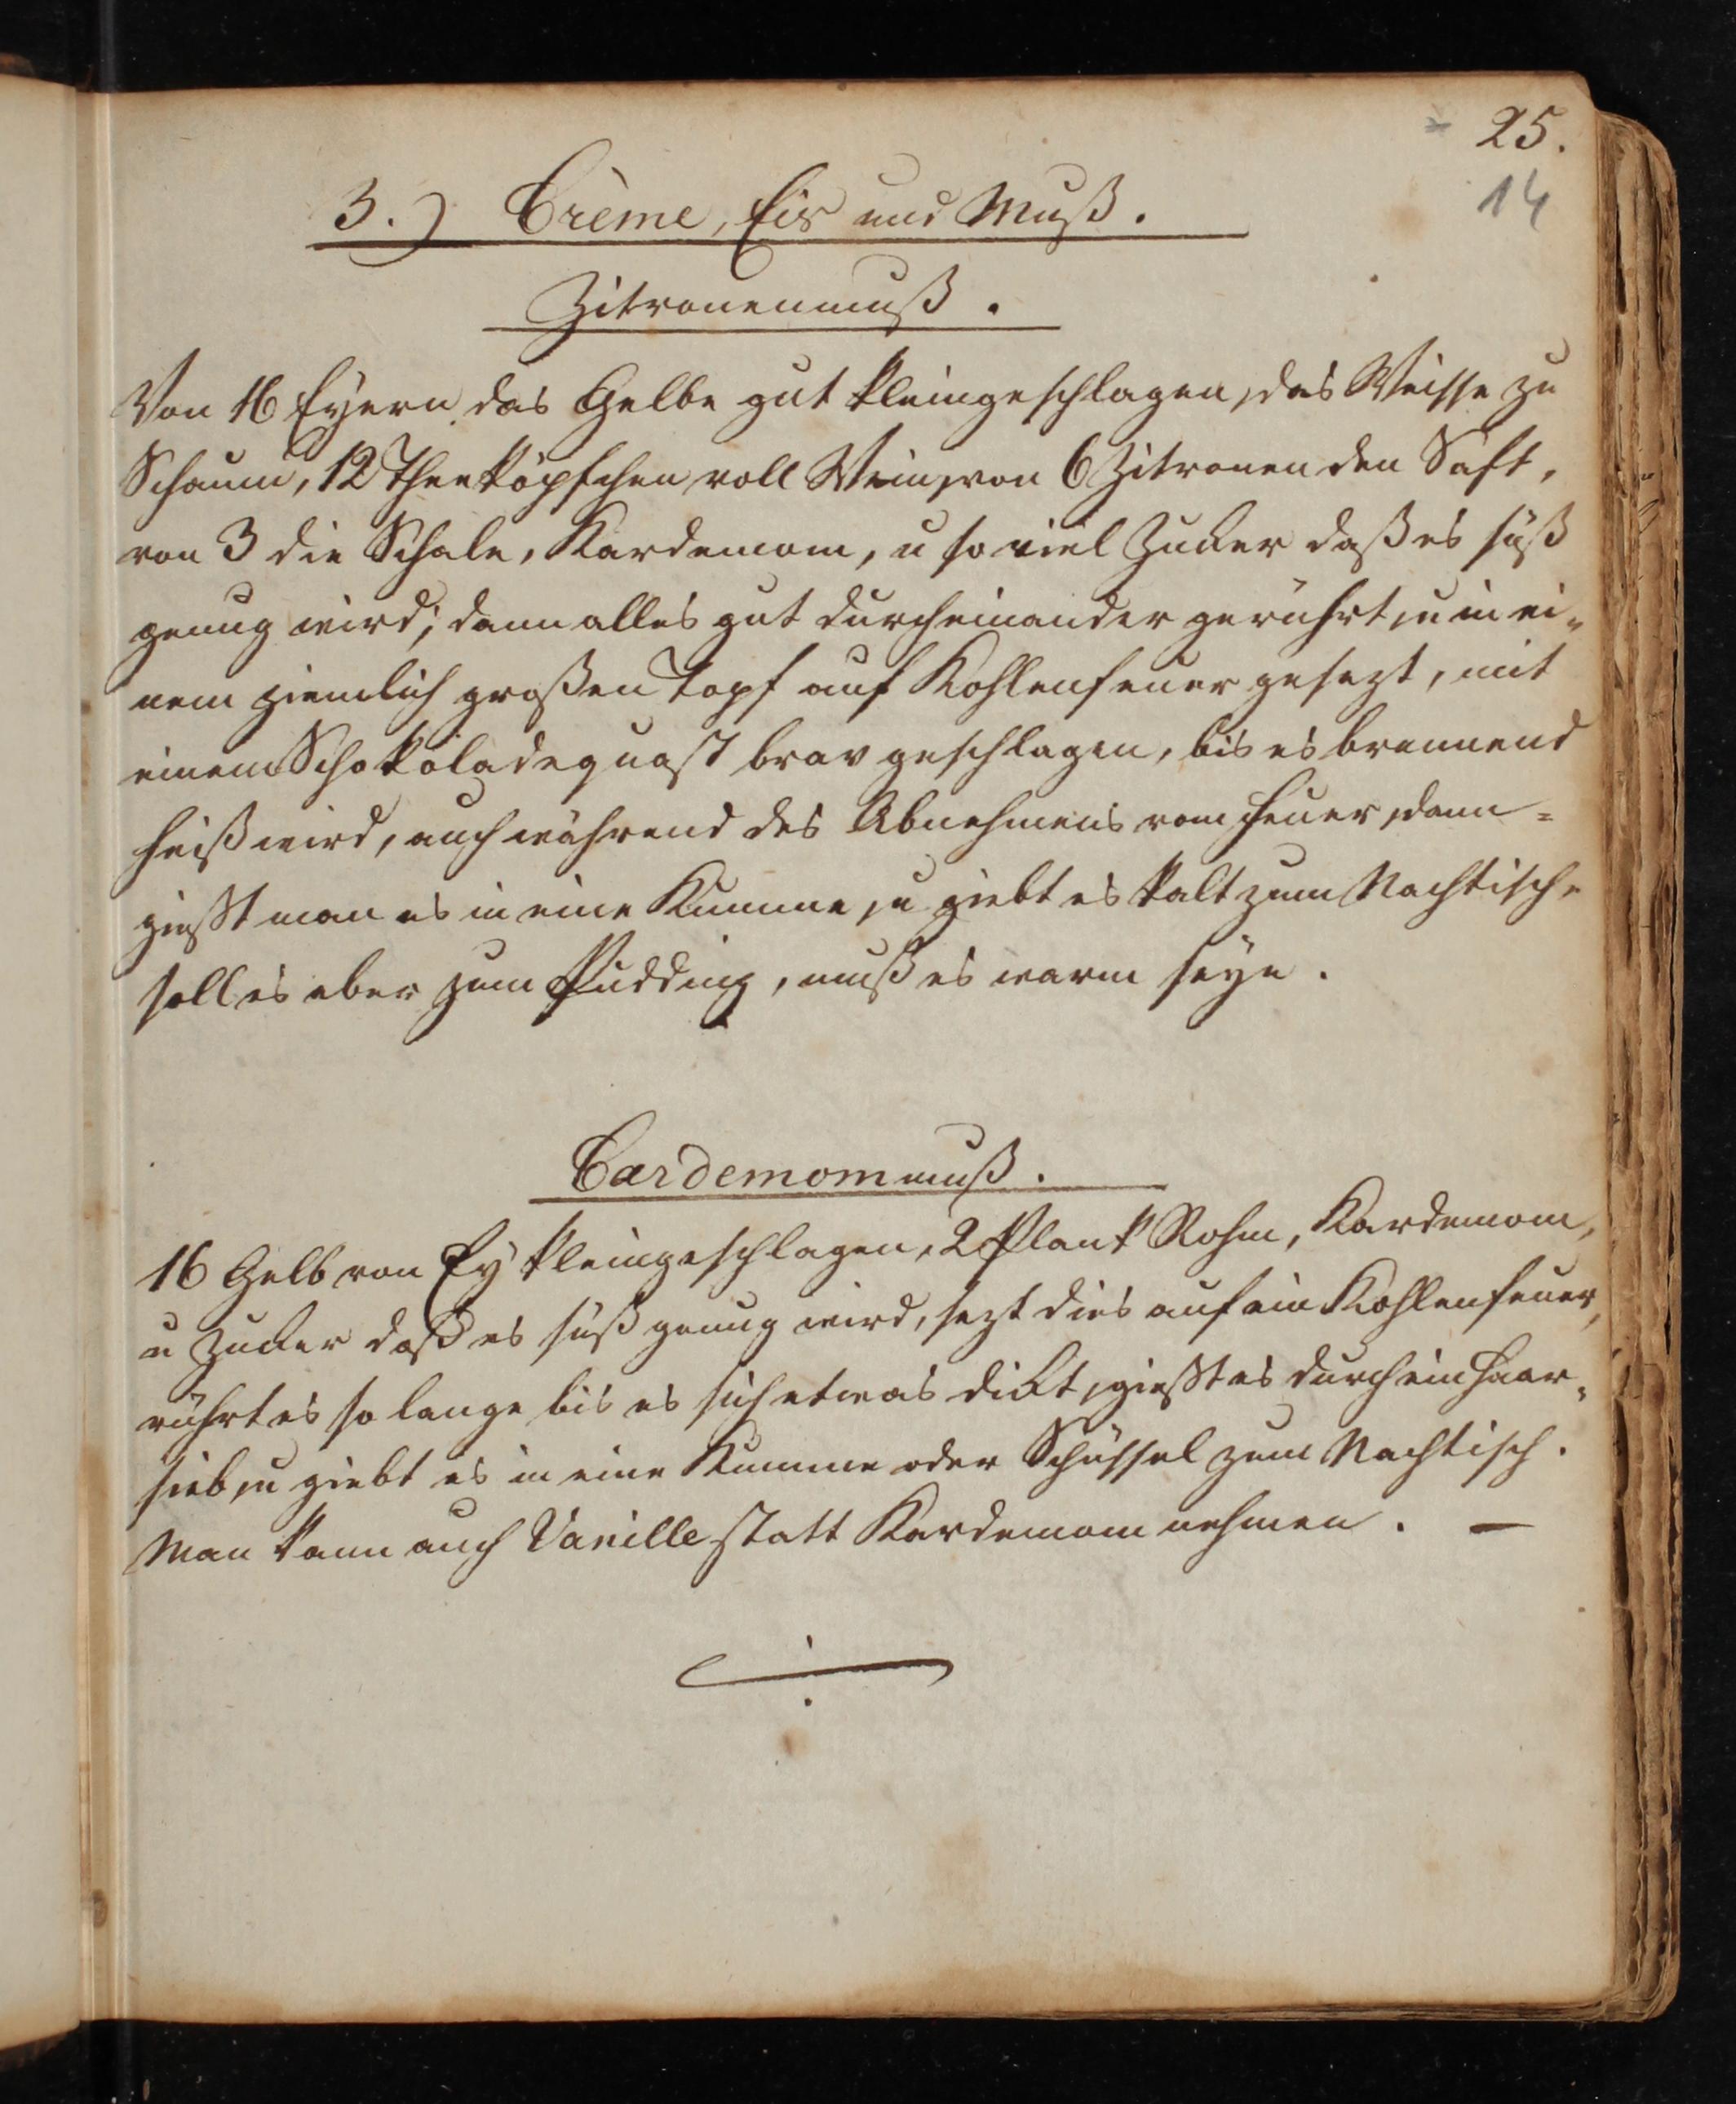 25.
14
3.) Crème, Eis und Muß.
Zitronenmuß.
Von 16 Eyern das Gelbe gut kleingeschlagen, das Weisse zu
Schaum, 12 Theeköpfchen voll Wein, von 6 Zitronen den Saft,
von 3 die Schale, Kardemom, u so viel Zucker daß es süß
genug wird; dann alles gut durcheinander gerührt, u in ei-
nem ziemlich großen Topf auf Kohlenfeuer gesezt, mit
einem Schokoladequast brav geschlagen, bis es brennend
heiß wird, auch während des Abnehmens vom Feuer, dann =
gießt man es in eine Kumme, u giebt es kalt zum Nachtisch,
soll es aber zum Pudding, muß es warm seyn.
Cardemommuß.
16 Gelb von Ey kleingeschlagen, 2 Plank Rohm, Kardemom,
u Zucker daß es süß genug wird, sezt dies auf ein Kohlenfeuer,
rührt es so lange bis es sich etwas dickt, gießt es durch ein Haar-
sieb, u giebt es in eine Kumme oder Schüssel zum Nachtisch.
Man kann auch Vanille statt Kardemom nehmen. —